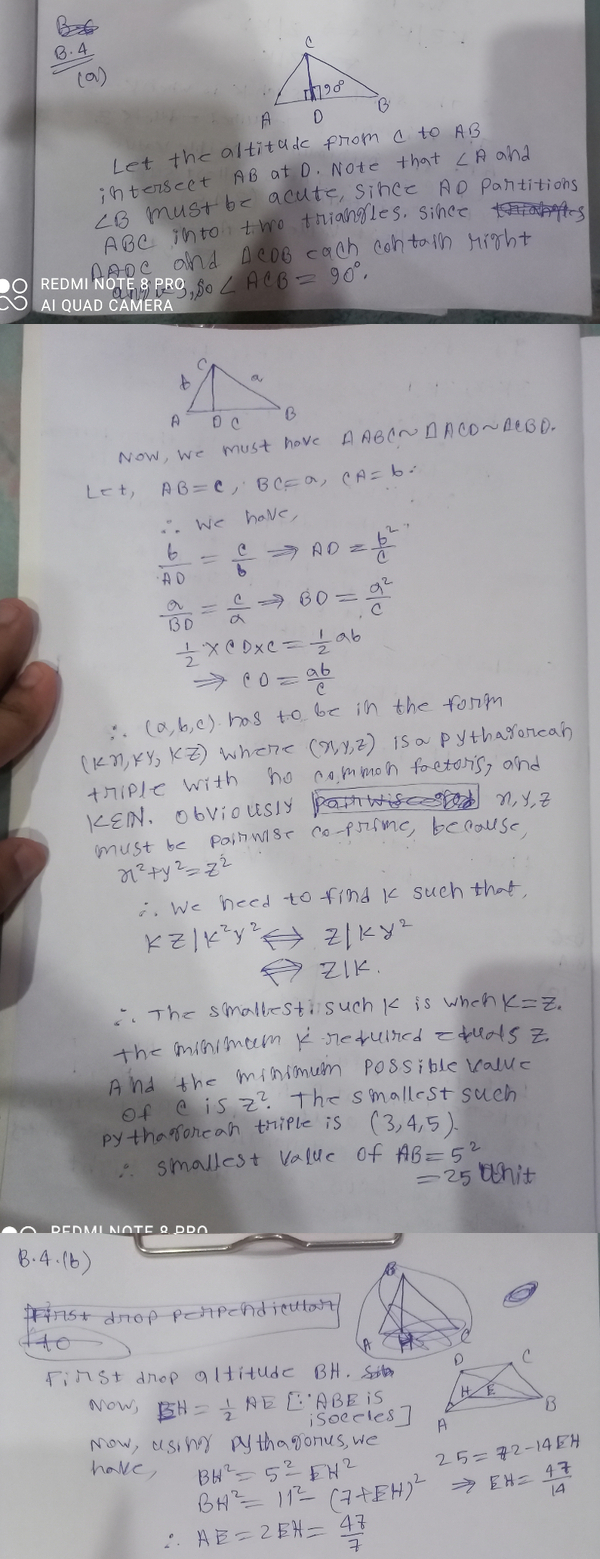 B.4
(a)
C
90°
A D B
Let the altitude from C to AB
intersect AB at D. Note that ∠A and
∠B must be acute, since AD Partitions
ABC into two triangles. since
ΔADC and ΔCDB each contain right
so ∠ACB = 90°.
REDMI NOTE 8 PRO
AI QUAD CAMERA
C
b a
A D C B
Now, we must have ΔABC ~ ΔACD ~ ΔCBD.
Let, AB = c, BC = a, CA = b.
∴ we have,
b/AD = c/b ⇒ AD = b²/c
a/BD = c/a ⇒ BD = a²/c
1/2 × CD × C = 1/2 ab
⇒ CD = ab/c
∴ (a,b,c) has to be in the form
(Kx, Ky, Kz) where (x,y,z) is a pythagorean
triple with no common factors, and
K∈N. Obviously x, y, z
must be pairwise co-prime, because,
x² + y² = z²
∴ We need to find K such that,
KZ | K²y² ⟺ Z | Ky²
⟺ Z|K.
∴ The smallest such K is when K = Z.
the minimum K required equals Z.
And the minimum possible value
of C is Z². The smallest such
pythagorean triple is (3, 4, 5).
∴ smallest value of AB = 5²
= 25 unit
REDMI NOTE 8 PRO
B.4.(b)
First drop perpendicular
to
B
A H C
First drop altitude BH.
D C
H E
A B
Now, BH = 1/2 AE [∵ ABE is
isoceles]
Now, using pythagorus, we
have,
BH² = 5² - EH²
BH² = 11² - (7+EH)²
25 = 72 - 14EH
⇒ EH = 47/14
∴ AE = 2EH = 47/7